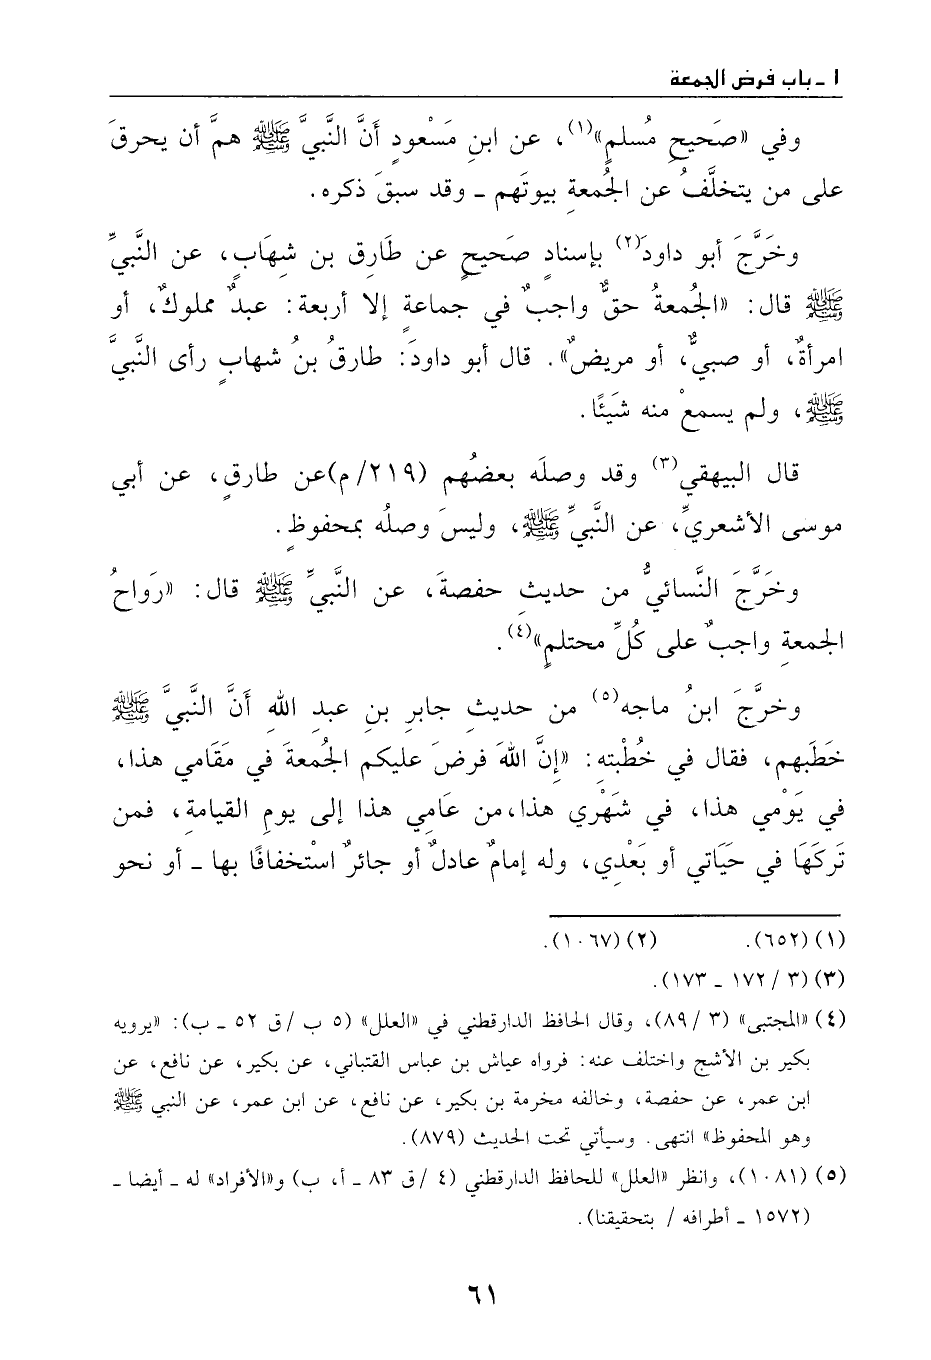 ١ ـ باب فرض الجمعة
وفي «صَحيحِ مُسلمٍ»(١)، عن ابنِ مَسْعودٍ أَنَّ النَّبيَّ ﷺ همَّ أن يحرقَ
على من يتخلَّفُ عن الجُمعةِ بيوتَهم ـ وقد سبقَ ذكره.
وخَرَّجَ أبو داودَ(٢) بإسنادٍ صَحيحٍ عن طَارِق بن شِهَابٍ، عن النَّبيِّ
ﷺ قال: «الجُمعةُ حقٌّ واجبٌ في جماعةٍ إلا أربعة: عبدٌ مملوكٌ، أو
امرأةٌ، أو صبيٌّ، أو مريضٌ». قال أبو داودَ: طارقُ بنُ شهابٍ رأى النَّبيَّ
ﷺ، ولم يسمعْ منه شَيئًا.
قال البيهقي(٣) وقد وصلَه بعضُهم (٢١٩/ م)عن طارقٍ، عن أبي
موسى الأشعريِّ، عن النَّبيِّ ﷺ، وليسَ وصلُه بمحفوظٍ.
وخَرَّجَ النَّسائيُّ من حديثِ حفصةَ، عن النَّبيِّ ﷺ قال: «رَواحُ
الجمعةِ واجبٌ على كُلِّ محتلمٍ»(٤).
وخرَّجَ ابنُ ماجه(٥) من حديثِ جابرِ بنِ عبدِ اللهِ أَنَّ النَّبيَّ ﷺ
خَطَبهم، فقال في خُطْبتهِ: «إِنَّ اللهَ فرضَ عليكم الجُمعةَ في مَقَامي هذا،
في يَوْمي هذا، في شَهْري هذا،من عَامِي هذا إلى يومِ القيامةِ، فمن
تَركَهَا في حَيَاتي أو بَعْدِي، وله إمامٌ عادلٌ أو جائرٌ اسْتخفافًا بها ـ أو نحو
(١) (٦٥٢). (٢) (١٠٦٧).
(٣) (٣/ ١٧٢ ـ ١٧٣).
(٤) «المجتبى» (٣/ ٨٩)، وقال الحافظ الدارقطني في «العلل» (٥ ب /ق ٥٢ ـ ب): «يرويه
بكير بن الأشج واختلف عنه: فرواه عياش بن عباس القتباني، عن بكير، عن نافع، عن
ابن عمر، عن حفصة، وخالفه مخرمة بن بكير، عن نافع، عن ابن عمر، عن النبي ﷺ
وهو المحفوظ» انتهى. وسيأتي تحت الحديث (٨٧٩).
(٥) (١٠٨١)، وانظر «العلل» للحافظ الدارقطني (٤ /ق ٨٣ ـ أ، ب) و«الأفراد» له ـ أيضا ـ
(١٥٧٢ ـ أطرافه / بتحقيقنا).
٦١